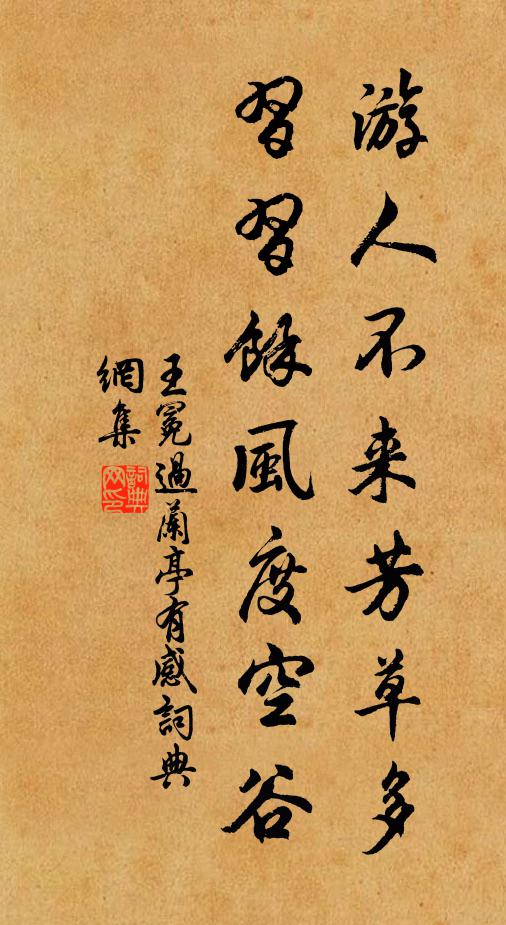 游人不来芳草多
習習餘風度空谷
王冕過蘭亭有感詞典
網集
詞典
网印